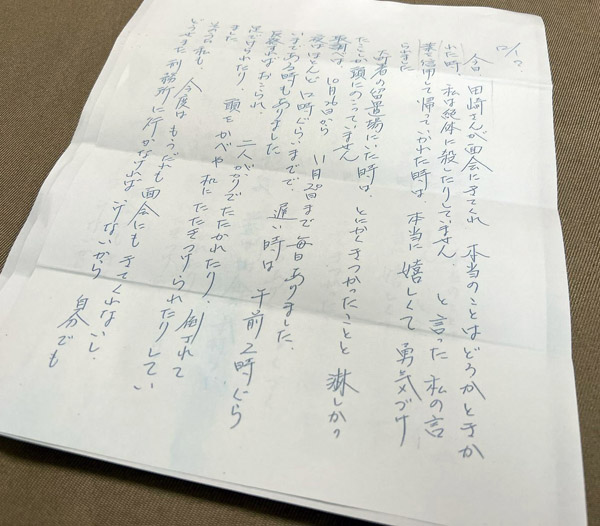 今 田崎さんが面会にきてくれ 本当のことはどうかときか
れた時 私は絶体に殺したりしていません。と言った 私の言
葉を信用して帰っていかれた時は 本当に嬉しくて 勇気づけ
られました
署の留置場にいた時は、とにかくきつかったことと 淋しかっ
たことが頭にのこっていません
取調べは、10月26日から 11月28日まで 毎日ありました。
夜はほとんど 12時ぐらいまでで 遅い時は 午前2時ぐら
いまである時もありました
おこられ、二人がかりでたたかれたり、倒されて
足でけられたり、頭をかべや机に たたきつけられたりしてい
ました
私も、今度は もうだれも面会にもきてくれないし、
どうせまた刑務所に行かなければ いけないから 自分でも